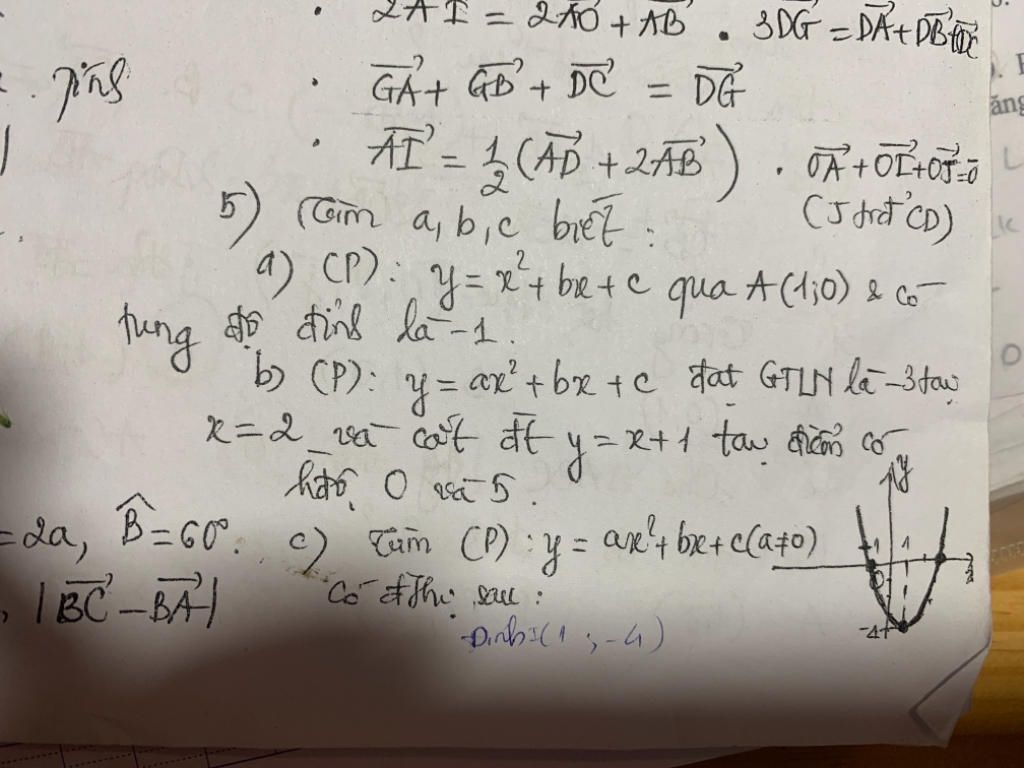 . 2AI⃗ = 2AO⃗ + AB⃗ . 3DG⃗ = DA⃗ + DB⃗ + DC⃗
. GA⃗ + GB⃗ + DC⃗ = DG⃗
. AI⃗ = 1/2 (AD⃗ + 2AB⃗) . OA⃗ + OI⃗ + OJ⃗ = 0⃗
(J trđ CD)
5) Tìm a, b, c biết :
a) (P): y = x² + bx + c qua A(1;0) & có
tung độ đỉnh là -1.
b) (P): y = ax² + bx + c đạt GTLN là -3 tại
x = 2 và cắt đt y = x + 1 tại điểm có
h/độ 0 và 5.
= 2a, B̂ = 60°. c) Tìm (P) : y = ax² + bx + c (a≠0)
, |BC⃗ - BA⃗| Có đ/thị sau :
Đỉnh I(1 ; -4)
y
1 1
-4